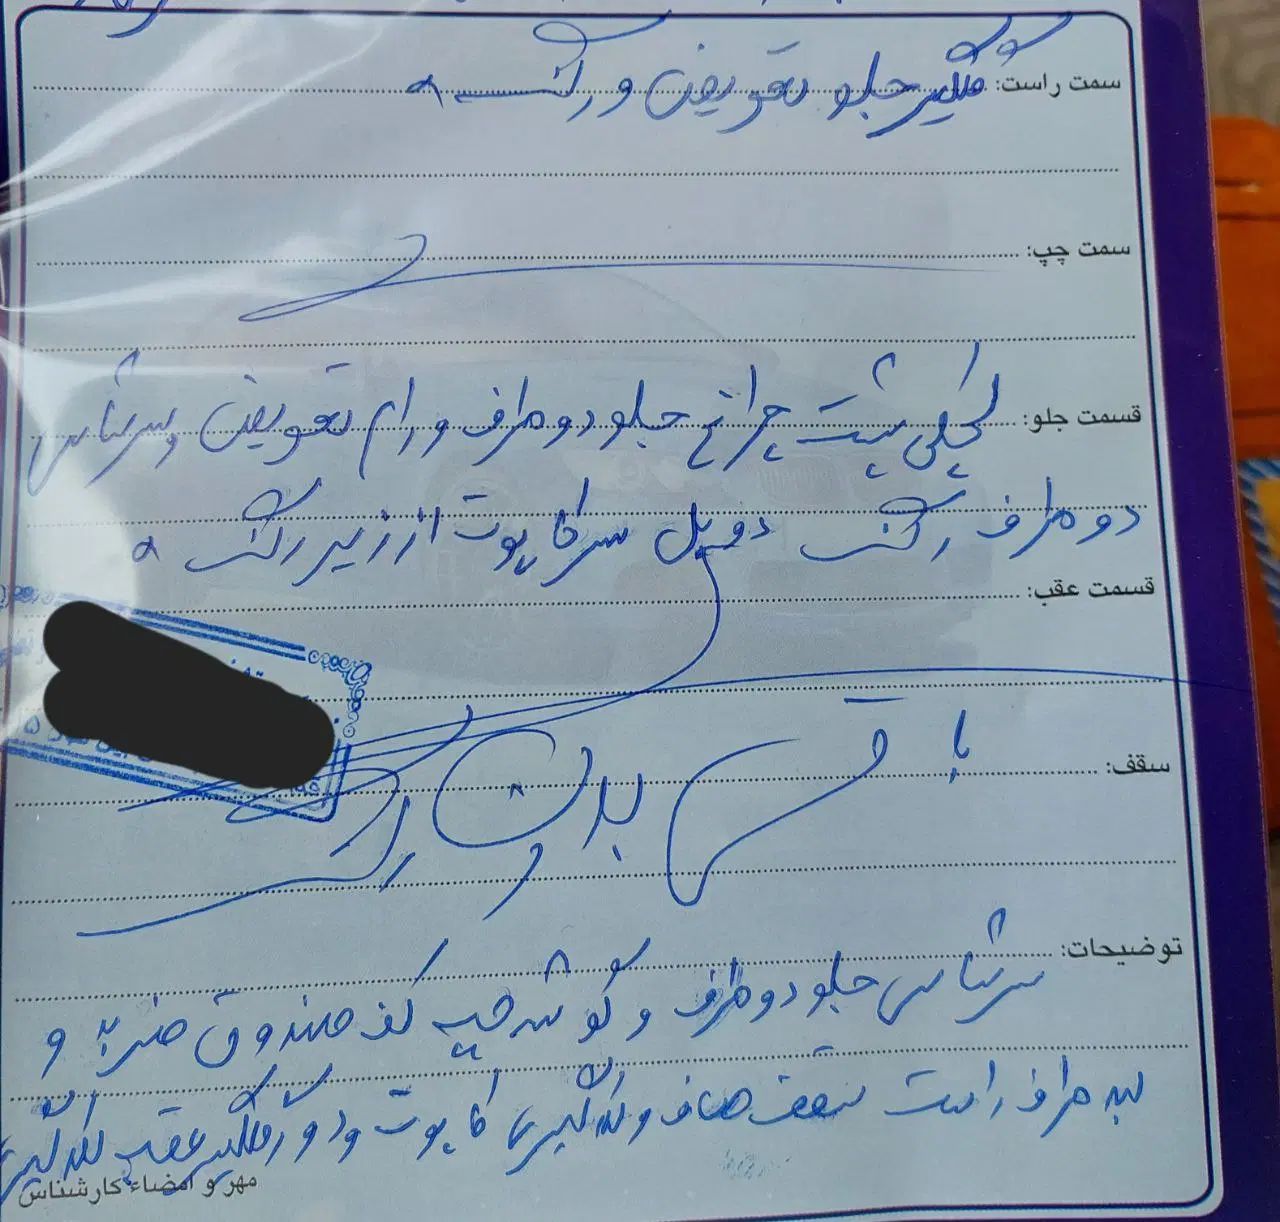 سمت راست: گلگیر جلو تعویض و رنگ
سمت چپ:
قسمت جلو: پشت چراغ جلو دو طرف و رام تعویض سرشاسی
دو طرف رنگ دو پل سر کاپوت از زیر رنگ
قسمت عقب:
سقف:
با بدن و رنگ
توضیحات:
سرشاسی جلو دو طرف و گوشه چپ کف صندوق ضربه و
لبه طرف راست سقف صاف و لکه گیری کاپوت و دور گلگیر عقب لکه گیری
مهر و امضاء کارشناس